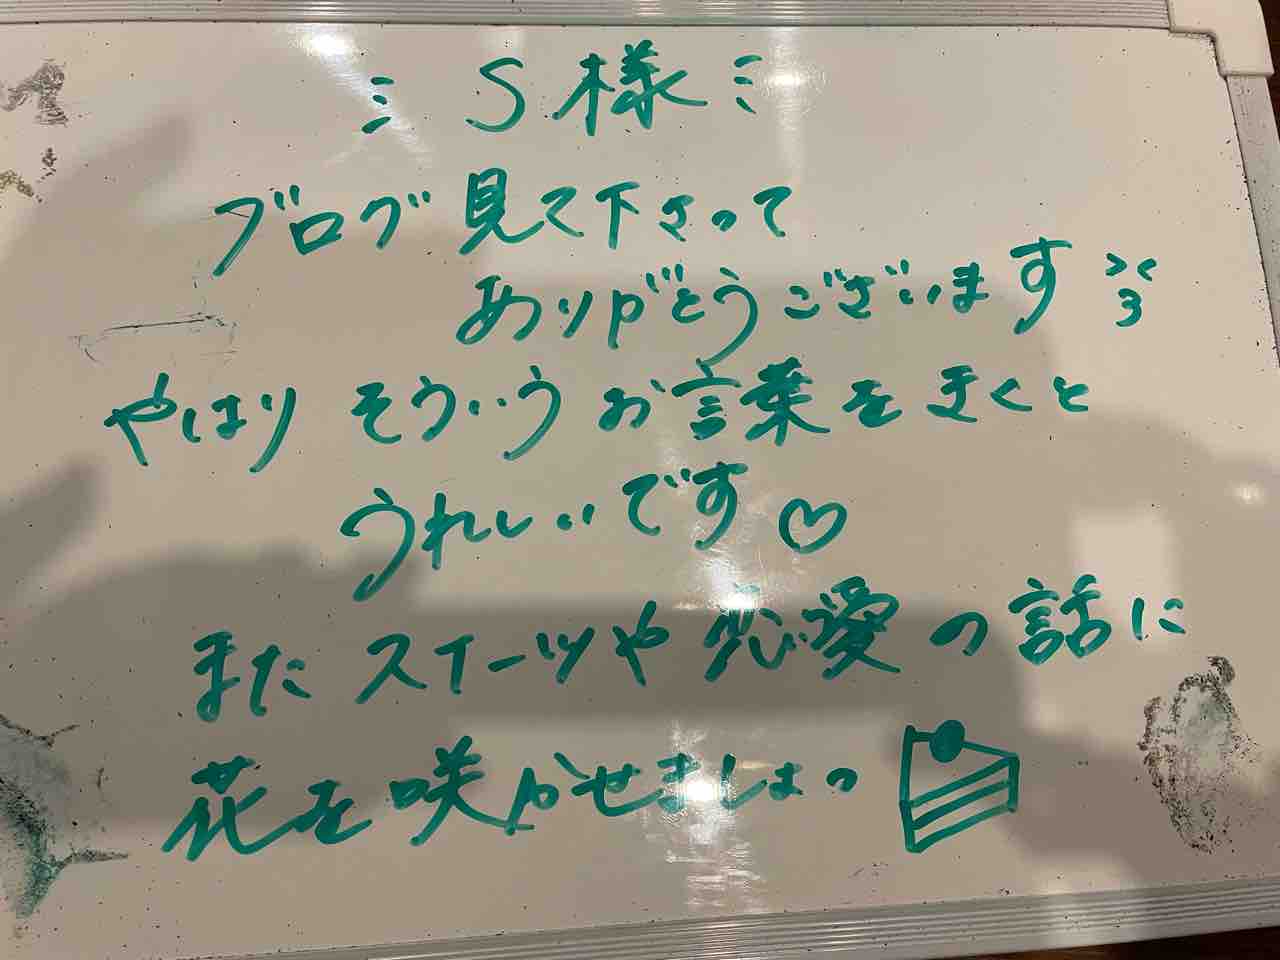 S様
ブログ見て下さって
ありがとうございます
やはりそういうお言葉をきくと
うれしいです♡
またスイーツや恋愛の話に
花を咲かせましょっ